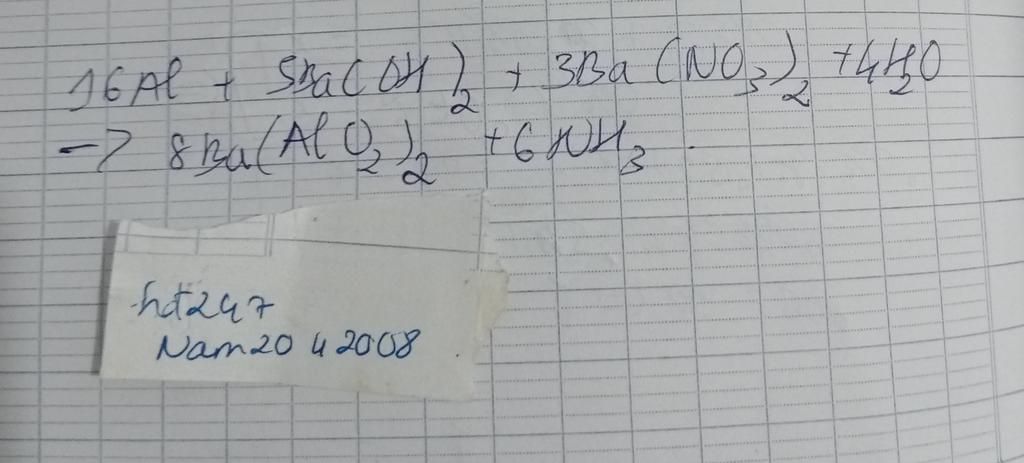 16Al + 5Ba(OH)2 + 3Ba(NO3)2 + 4H2O
-> 8Ba(AlO2)2 + 6NH3.
hdt247
Nam20 4 2008.